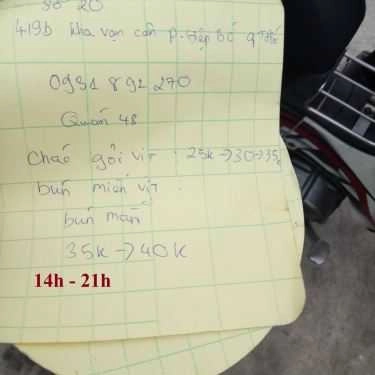 số 20
419b kha vạn cân p. Hiệp Bố q Thủ
0931 891 270
Quán 48
Cháo gỏi vịt : 25k → 30 → 35k
bún miến vịt
bún măn
35k → 40k
14h - 21h